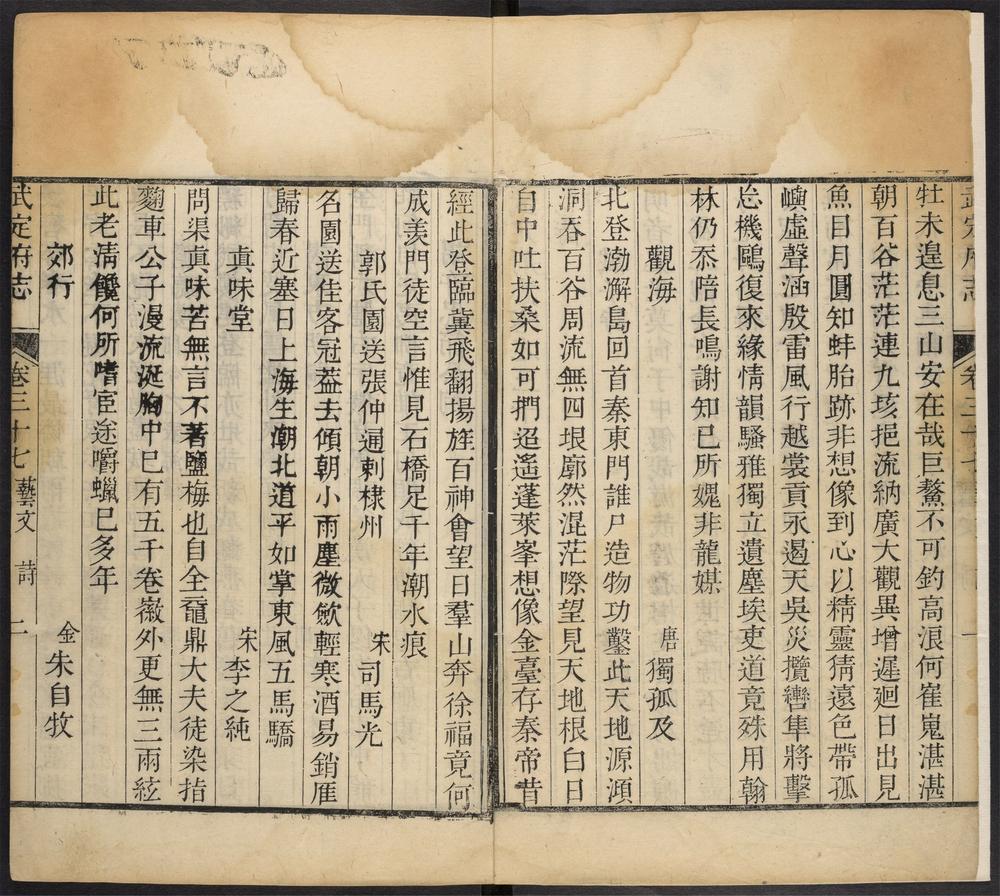 武定府志
卷三十七
一
牡未遑息三山安在哉巨鰲不可釣高浪何崔嵬湛湛
朝百谷茫茫連九垓挹流納廣大觀異增遲廻日出見
魚目月圓知蚌胎跡非想像到心以精靈猜遠色帶孤
嶼虛聲涵殷雷風行越裳貢水遏天吳災攬轡隼將擊
忘機鷗復來緣情韻騷雅獨立遺塵埃吏道竟殊用翰
林仍忝陪長鳴謝知已所媿非龍媒
觀海
唐 獨孤及
北登渤澥島回首秦東門誰尸造物功鑿此天地源澒
洞吞百谷周流無四垠廓然混茫際望見天地根白日
自中吐扶桑如可捫迢遙蓬萊峯想像金臺存秦帝昔
經此登臨冀飛翻揚旌百神會望日羣山奔徐福竟何
成羨門徒空言惟見石橋足千年潮水痕
郭氏園送張仲通剌棣州
宋 司馬光
名園送佳客冠葢去傾朝小雨塵微歛輕寒酒易銷雁
歸春近塞日上海生潮北道平如掌東風五馬驕
真味堂
宋 李之純
問渠真味苦無言不著鹽梅也自全黿鼎大夫徒染指
麴車公子漫流涎胸中已有五千卷徽外更無三兩絃
此老淸饞何所嗜宦途嚼蠟已多年
郊行
金 朱自牧
武定府志
卷三十七 藝文 詩
二